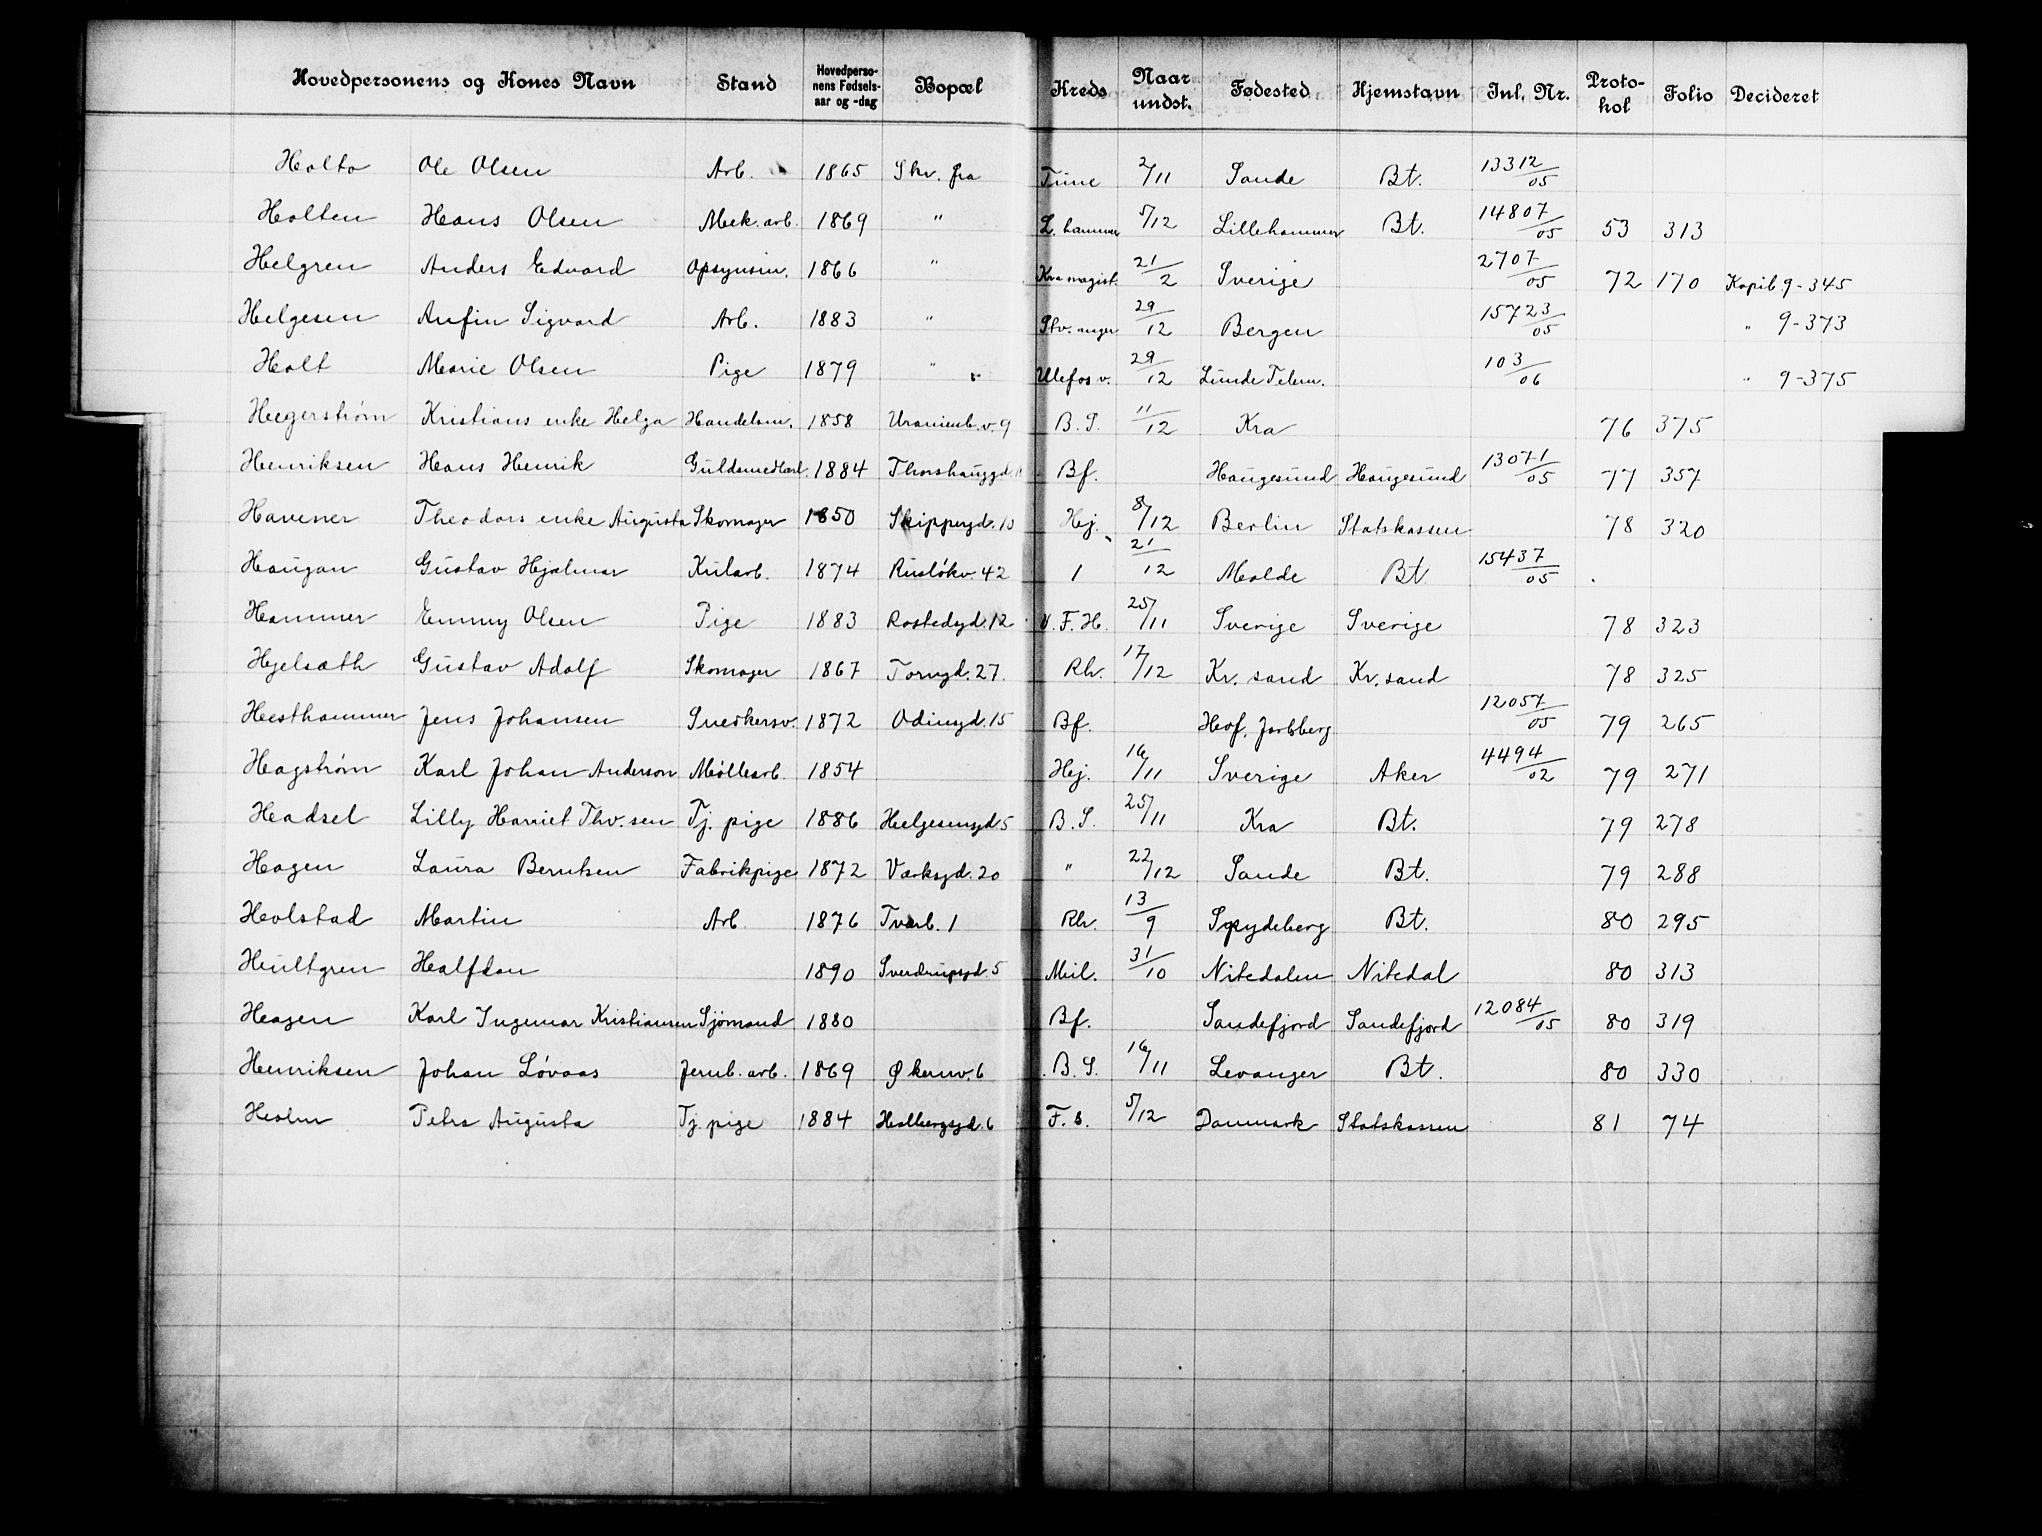 Hovedpersonens og Kones Navn Stand Hovedpersonens Fødselsaar og -dag Bopæl Kreds Naar undst. Fødested Hjemstavn Inl. Nr. Protokol Folio Decideret
Holto Ole Olsen Arb. 1865 Skr. fra Tune 2/11 Sande Bt. 13312/05
Holten Hans Olsen Mek. arb. 1869 " L. hammer 5/12 Lillehammer Bt. 14807/05 53 313
Helgren Anders Edvard Opsynsm. 1866 " Kra magist. 21/2 Sverige 2707/05 72 170 Kopib. 9-345
Helgesen Anfin Sigvard Arb. 1883 " Stv. anger 29/12 Bergen 15723/05 " 9-373
Holt Marie Olsen Pige 1879 " Ulefos v. 29/12 Lunde Telem. 103/06 " 9-375
Hegerstrøm Kristians enke Helga Handelsm. 1858 Uranienb.v. 9 B. S. 11/12 Kra 76 375
Henriksen Hans Henrik Guldsmedlærl. 1884 Thorshauggd. Bf. Haugesund Haugesund 13071/05 77 357
Havener Theodors enke Augusta Skomager 1850 Skippergd. 10 Hej. 8/12 Berlin Statskassen 78 320
Haugan Gustav Hjalmar Kularb. 1874 Rusløkv. 42 1 21/12 Molde Bt 15437/05
Hammer Emmy Olsen Pige 1883 Rostedgd. 12 V. F. H. 25/11 Sverige Sverige 78 323
Hjelsæth Gustav Adolf Skomager 1867 Torvgd. 27. Rh. 17/12 Kr. sand Kr. sand 78 325
Hesthammer Jens Johansen Snedkersv. 1872 Odinsgd. 15 Bf. Hof, Jarlsberg 12057/05 79 265
Hagstrøm Karl Johan Anderson Møllearb. 1854 Hej. 16/11 Sverige Aker 4494/02 79 271
Hadsel Lilly Harriet Thv. sen Tj. pige 1886 Helgesensgd. 5 B. S. 25/11 Kra Bt. 79 278
Hagen Laura Berntsen Fabrikpige 1872 Verksgd. 20 " 22/12 Sande Bt. 79 288
Holstad Martin Arb. 1876 Tverb. 1 Rh. 13/9 Spydeberg Bt. 80 295
Hultgren Halfdan 1890 Sverdrupsgd. 5 Mil. 31/10 Nitedalen Nitedal 80 313
Hagen Karl Ingemar Kristiansen Sjömand 1880 Bf. Sandefjord Sandefjord 12084/05 80 319
Henriksen Johan Løvaas Jernb. arb. 1869 Økernv. 6 B. S. 16/11 Levanger Bt. 80 330
Holm Petra Augusta Tj. pige 1884 Holbergsgd. 6 F. s. 5/12 Danmark Statskassen 81 74